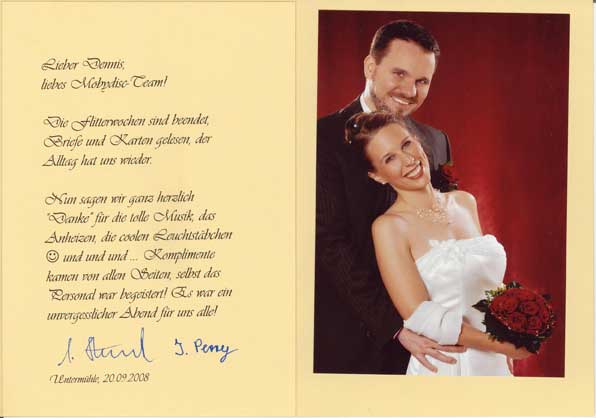 Lieber Dennis,
liebes Mobydisc-Team!
Die Flitterwochen sind beendet,
Briefe und Karten gelesen, der
Alltag hat uns wieder.
Nun sagen wir ganz herzlich
"Danke" für die tolle Musik, das
Anheizen, die coolen Leuchtstäbchen
☺ und und und ... Komplimente
kamen von allen Seiten, selbst das
Personal war begeistert! Es war ein
unvergesslicher Abend für uns alle!
Untermühle, 20.09.2008